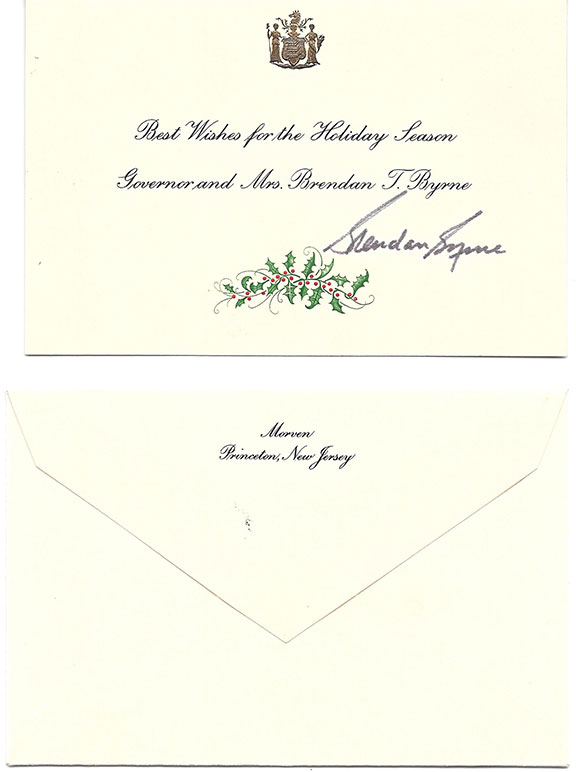 Best Wishes for the Holiday Season
Governor and Mrs. Brendan T. Byrne
Brendan Byrne
Morven
Princeton, New Jersey